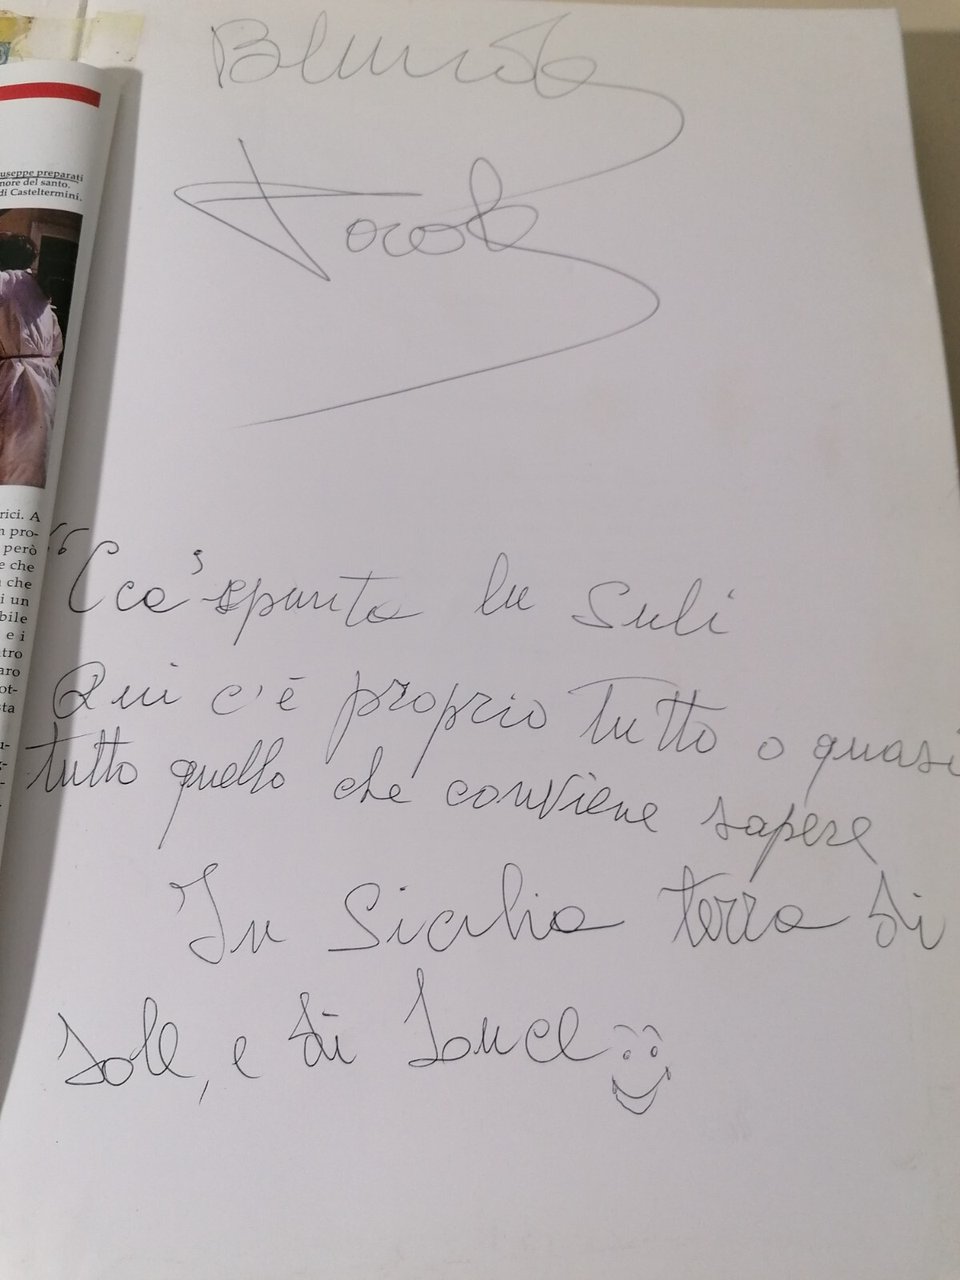 useppe preparati
nore del santo.
di Casteltermini.
rici. A
n pro-
però
e che
che
i un
bile
e i
tro
aro
ot-
sta
u-
"Cca' spunta lu Suli
Qui c'è proprio tutto o quasi
tutto quello che conviene sapere
In Sicilia terra di
sole, e di Luce